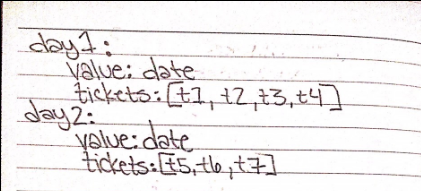 day1:
value: date
tickets: [t1, t2, t3, t4]
day2:
value: date
tickets: [t5, t6, t7]